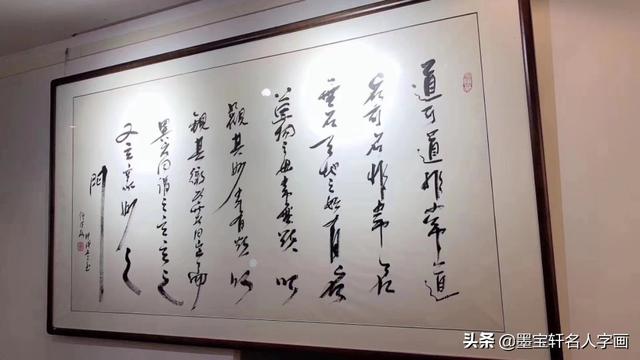 道可道非常道
名可名非常名
無名天地之始有名
萬物之母常無欲以
觀其妙常有欲以
觀其徼此兩者同出而
異名同謂之玄玄之
又玄衆妙之
門
头条 @墨宝轩名人字画